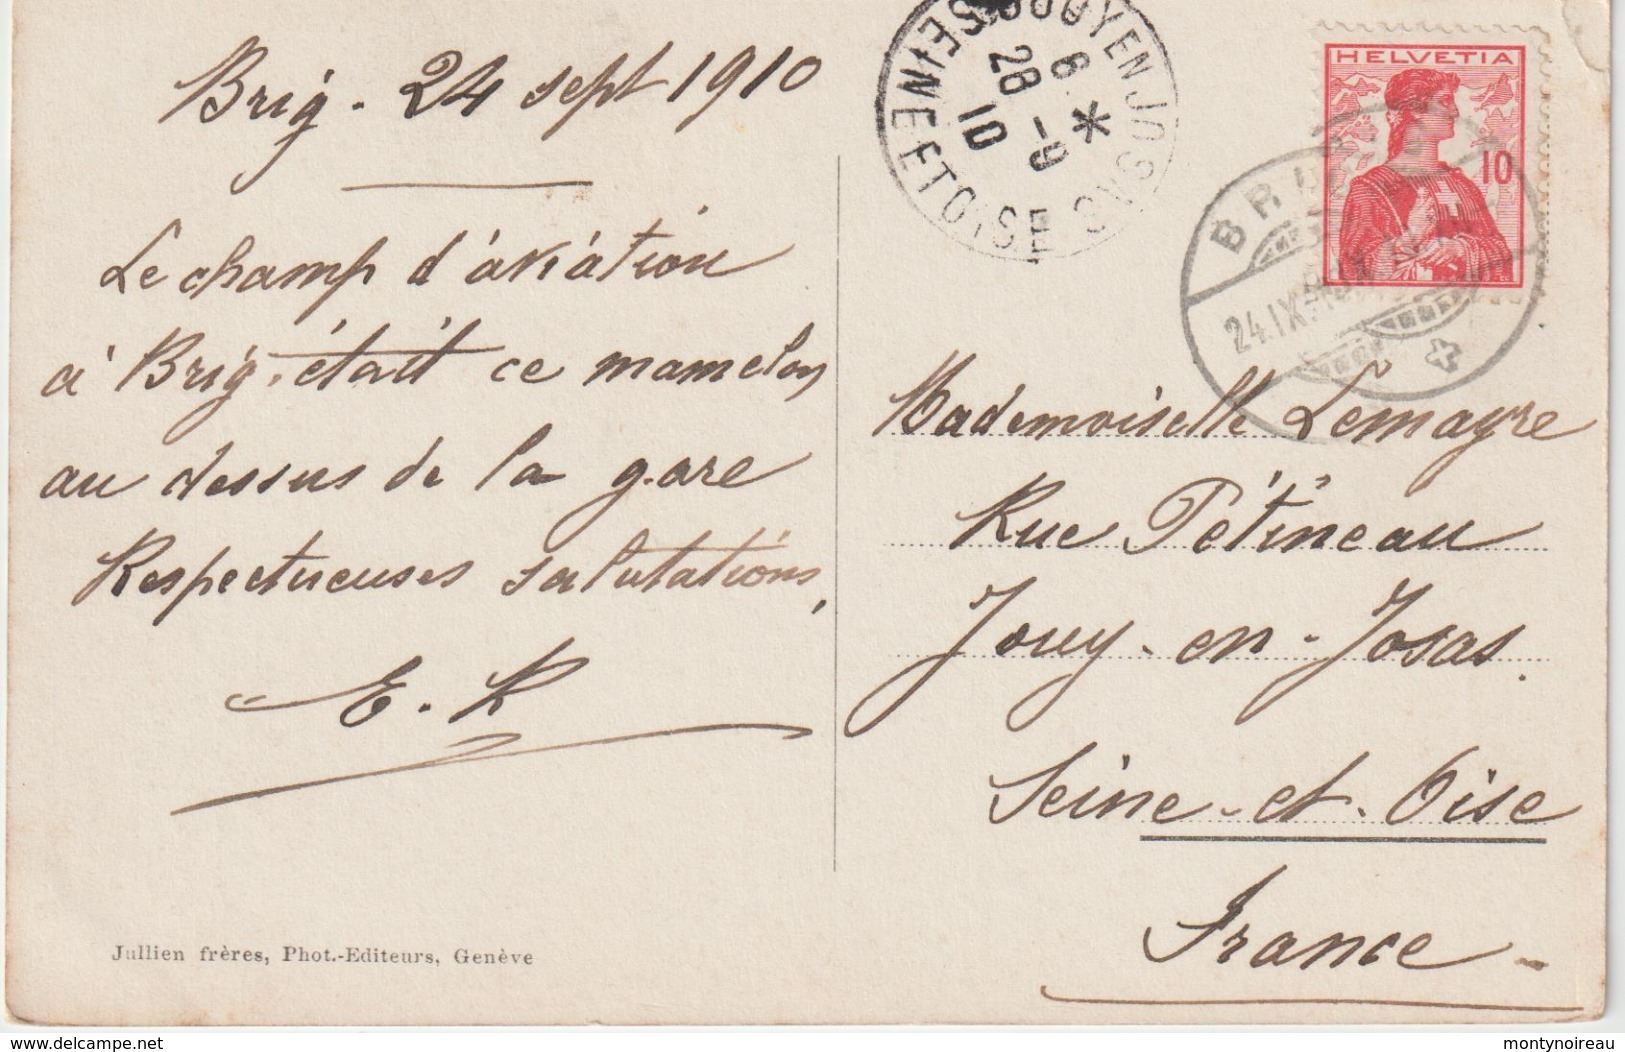 Brig. 24 sept 1910
Le champ d'aviation
à Brig. était ce mamelon
au dessus de la gare
Respectueuses salutations,
E. R
Jullien frères, Phot.-Editeurs, Genève
JOUY EN JOSAS
SEINE ET OISE
*
28 -9
10
HELVETIA
10
24.IX
Mademoiselle Lemayre
Rue Pétineau
Jouy-en-Josas.
Seine-et-Oise
France
© delcampe.net
montynoireau